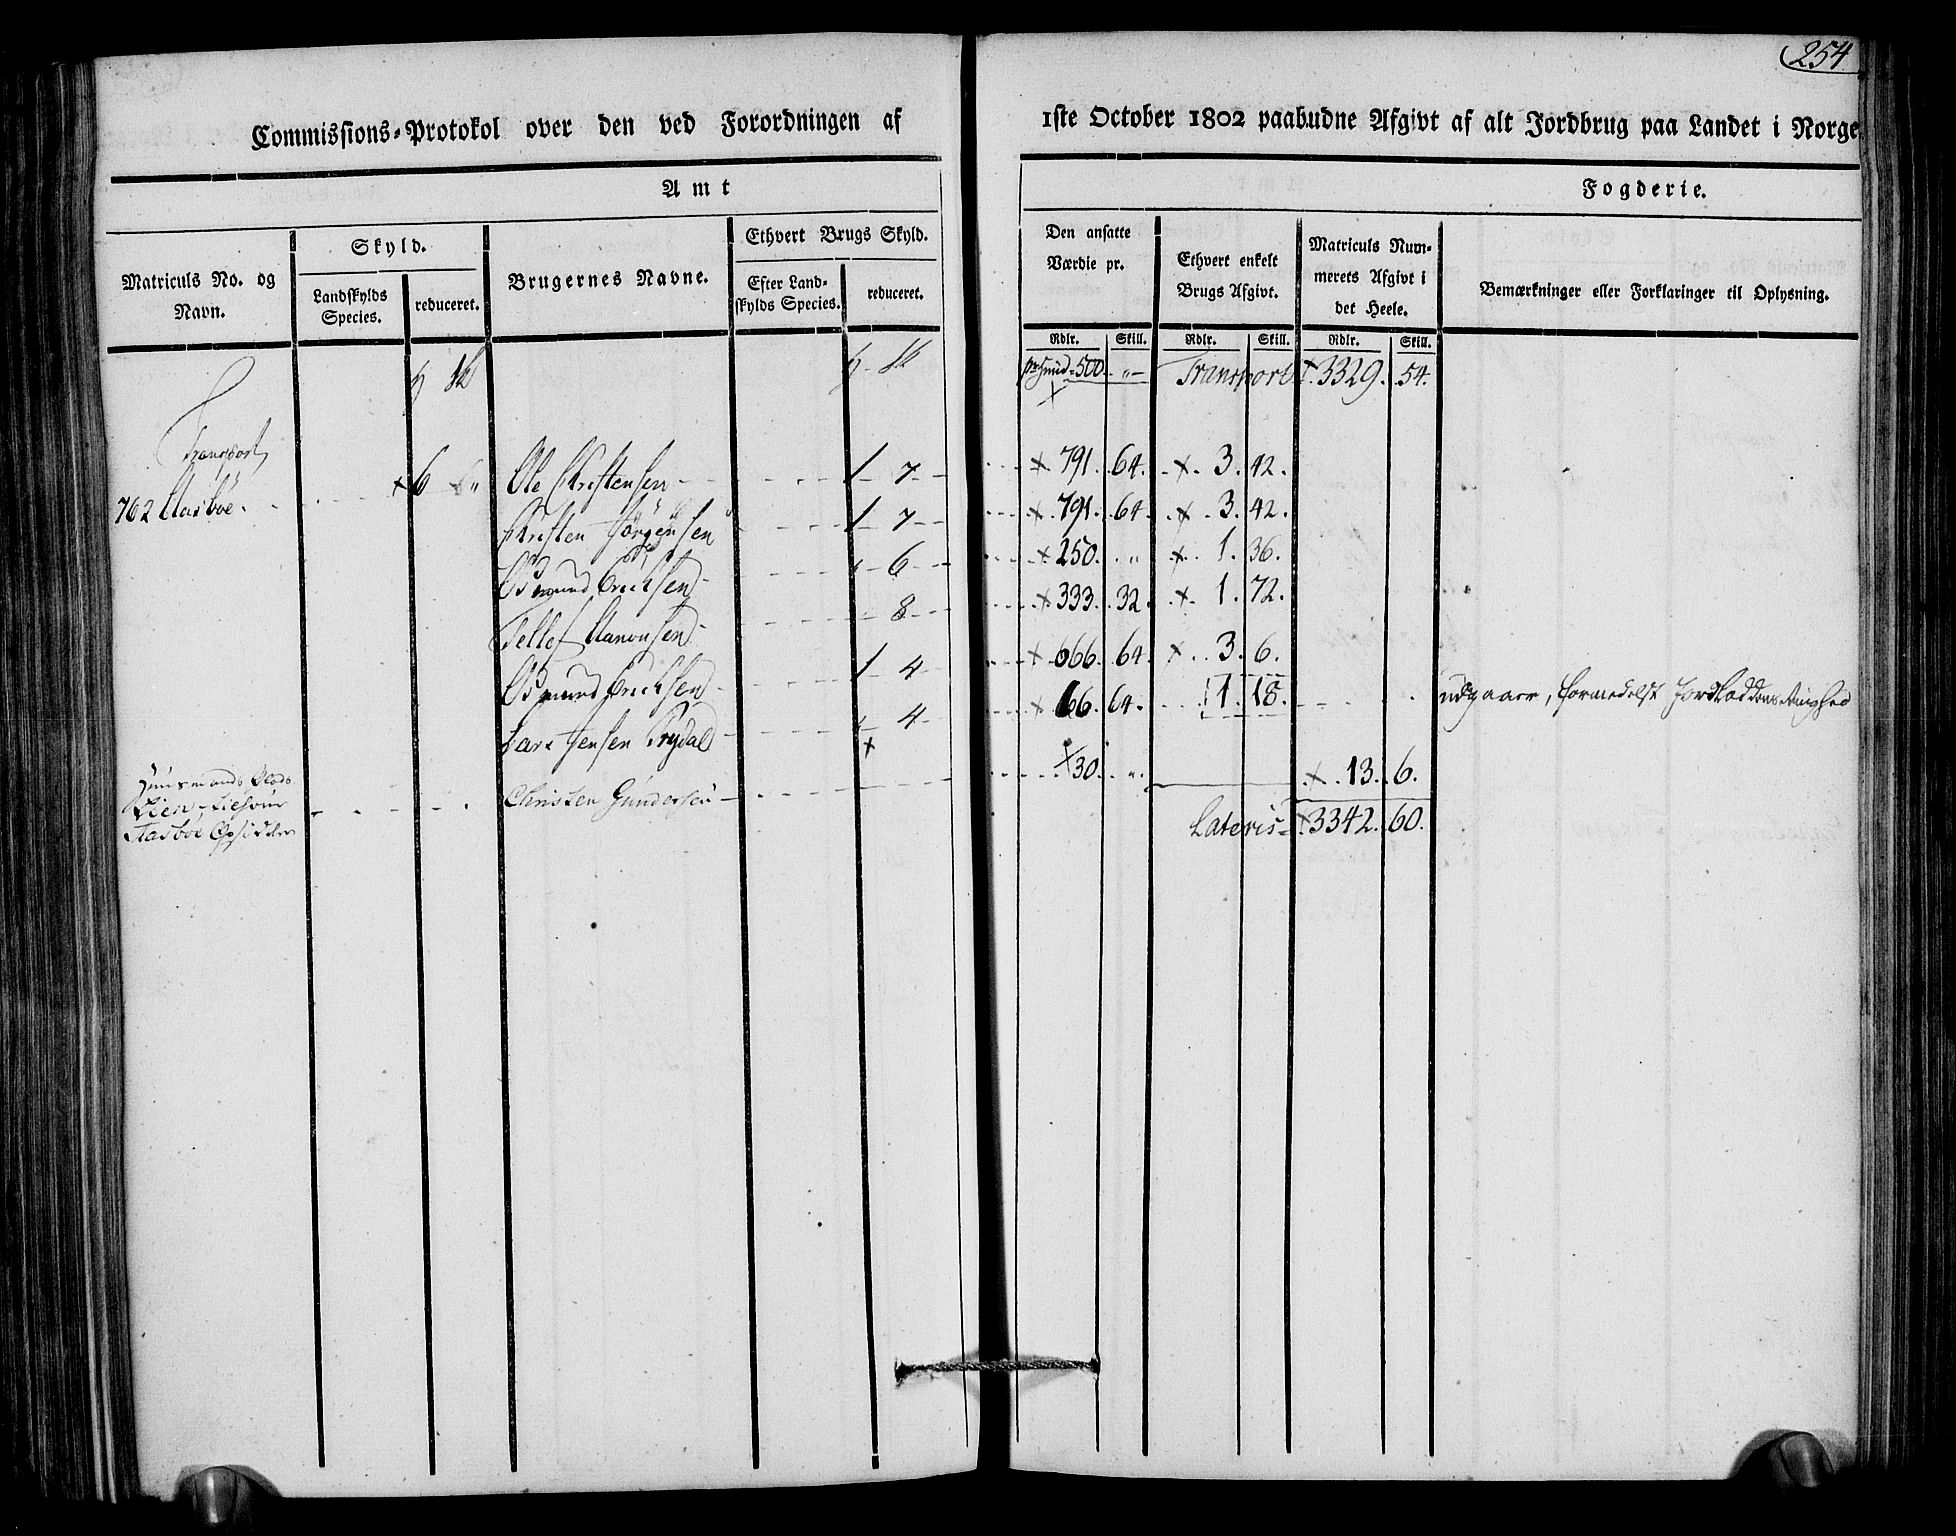 254
Commissions-Protokol over den ved Forordningen af 1ste October 1802 paabudne Afgivt af alt Jordbrug paa Landet i Norge.
Amt Fogderie.
Matriculs No. og Navn.
Skyld.
Landskylds Species.
reduceret.
Brugernes Navne.
Ethvert Brugs Skyld.
Efter Landskylds Species.
reduceret.
Den ansatte Værdie pr.
Rdlr. Skill.
Ethvert enkelt Brugs Afgivt.
Rdlr. Skill.
Matriculs Nummerets Afgivt i det Heele.
Rdlr. Skill.
Bemærkninger eller Forklaringer til Oplysning.
500 " Transport 3329. 54.
Transport
762 Aasbøe 6 " Ole Christensen 1 7 791. 64. 3. 42.
Christen Jørgensen 1 7 791. 64. 3. 42.
Osmund Erichsen " 6 250. " 1. 36.
Tellef Aanonsen " 8 333. 32. 1. 72.
Osmund Erichsen 1 4 666. 64. 3. 6.
Lars Jensen Frydal " 4 66. 64. 1. 18. udgaaer, formedelst Jordloddens Ringhed
Huusmands Plads
Lien
Aasbøe Opsidder Christen Gundersen 30. " 13. 6.
Lateris 3342. 60.